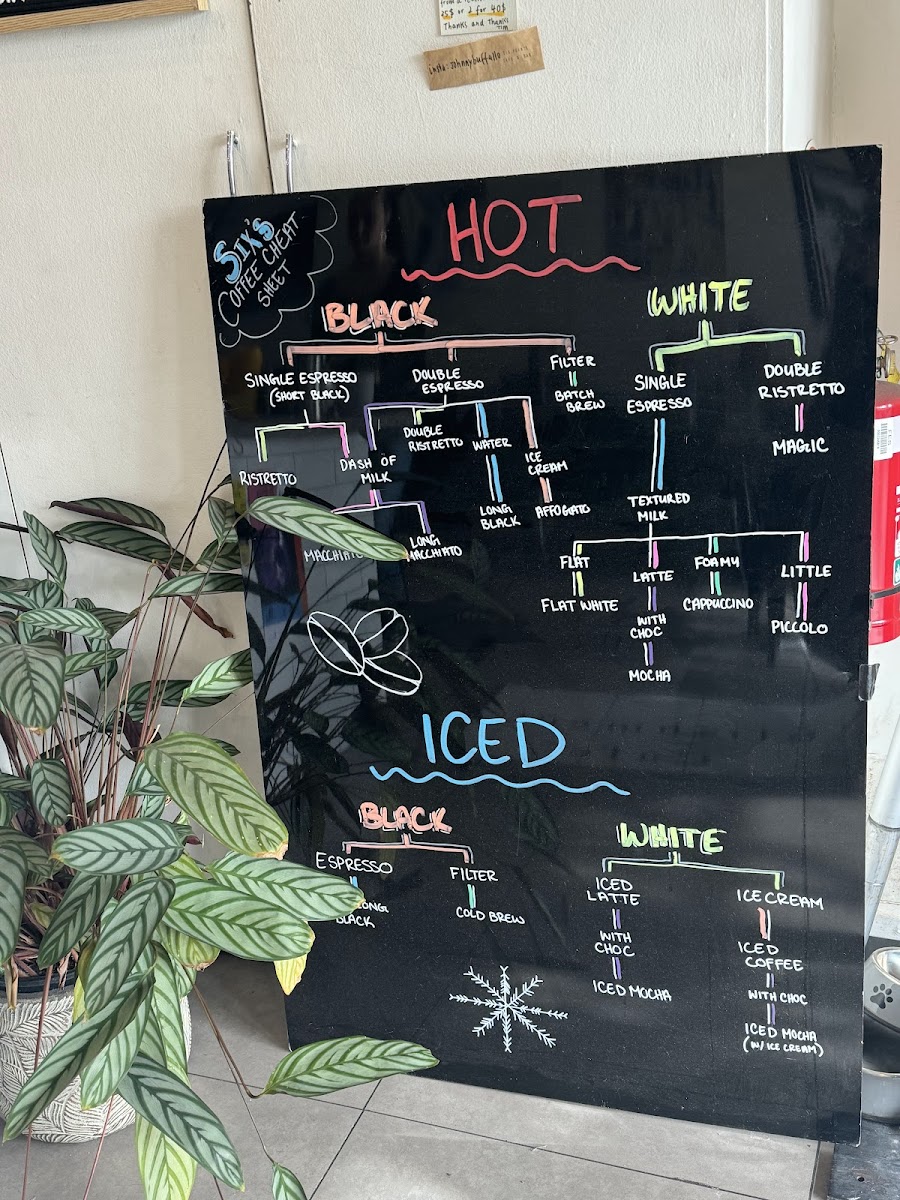 25$ or 2 for 40$
Thanks and Thanks
Tim
insta: johnnybuffallo
SIX'S
COFFEE CHEAT
SHEET
HOT
BLACK
SINGLE ESPRESSO
(SHORT BLACK)
RISTRETTO
DASH OF
MILK
MACCHIATO
LONG
MACCHIATO
DOUBLE
ESPRESSO
DOUBLE
RISTRETTO
WATER
LONG
BLACK
ICE
CREAM
AFFOGATO
FILTER
BATCH
BREW
WHITE
SINGLE
ESPRESSO
TEXTURED
MILK
FLAT
FLAT WHITE
LATTE
WITH
CHOC
MOCHA
FOAMY
CAPPUCCINO
LITTLE
PICCOLO
DOUBLE
RISTRETTO
MAGIC
ICED
BLACK
ESPRESSO
LONG
BLACK
FILTER
COLD BREW
WHITE
ICED
LATTE
WITH
CHOC
ICED MOCHA
ICE CREAM
ICED
COFFEE
WITH CHOC
ICED MOCHA
(W/ ICE CREAM)